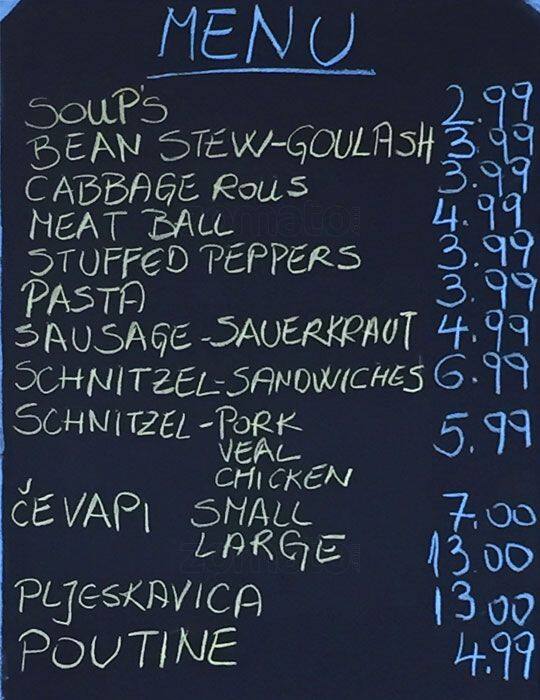 MENU
SOUP'S 2.99
BEAN STEW-GOULASH 3.99
CABBAGE ROLLS 3.99
MEAT BALL 4.99
STUFFED PEPPERS 3.99
PASTA 3.99
SAUSAGE-SAUERKRAUT 4.99
SCHNITZEL-SANDWICHES 6.99
SCHNITZEL-PORK 5.99
VEAL
CHICKEN
ČEVAPI SMALL 7.00
LARGE 13.00
PLJESKAVICA 13 00
POUTINE 4.99
zomato